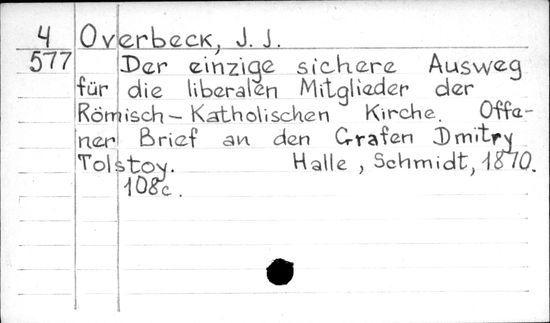 4 Overbeck, J. J.
577 Der einzige sichere Ausweg
für die liberalen Mitglieder der
Römisch-Katholischen Kirche. Offe-
ner Brief an den Grafen Dmitry
Tolstoy. Halle, Schmidt, 1870.
108c.